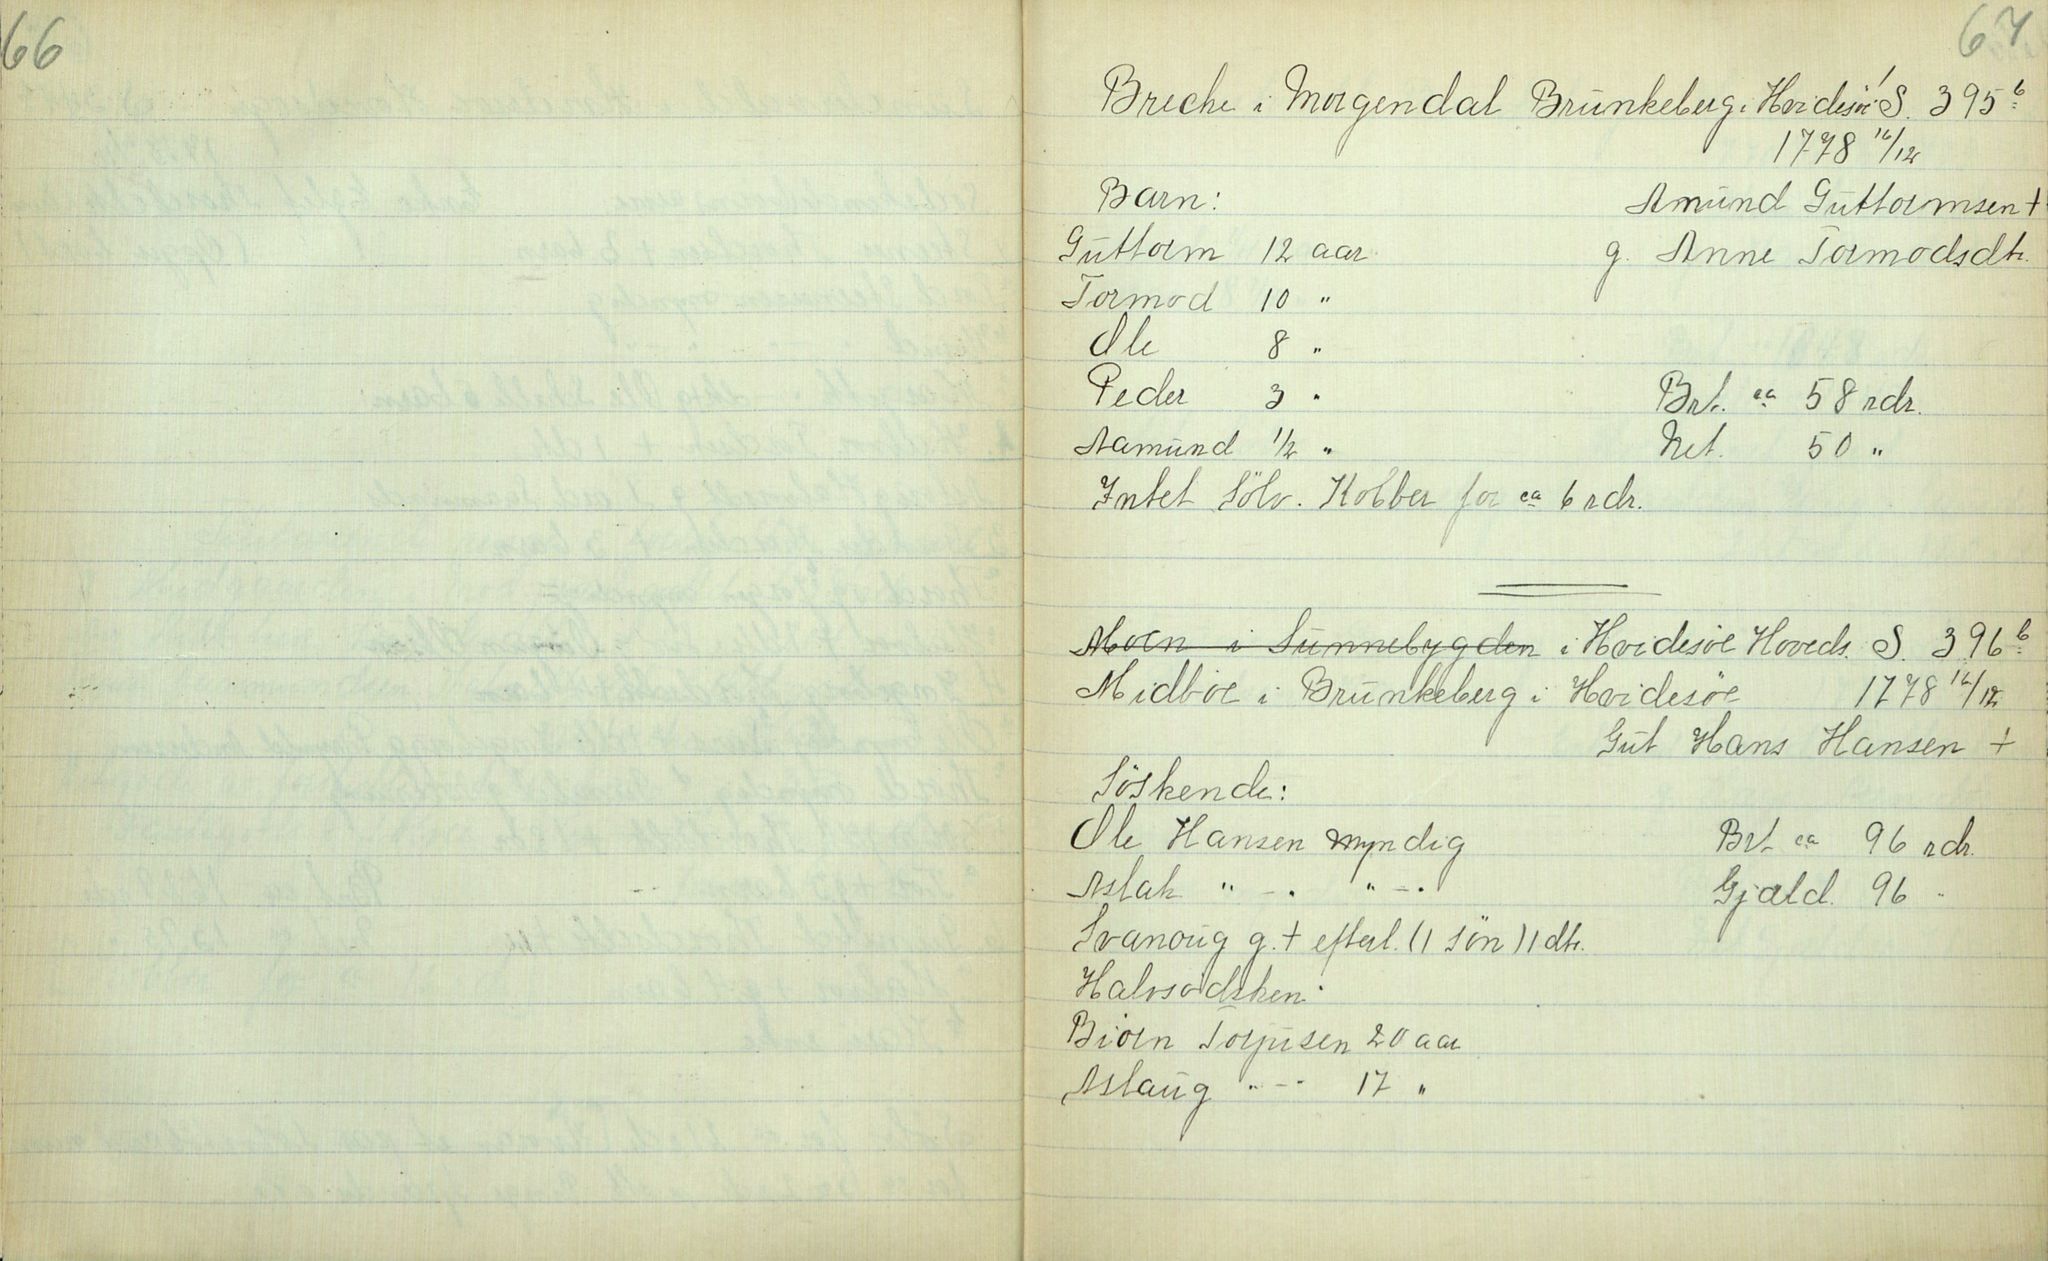 66
67
Breche i Morgendal Brunkeberg i Hvidesöe S. 395 b
1778 16/12
Barn: Amund Guttormsen +
Guttorm 12 aar g. Anne Tormodsdtr.
Tormod 10 "
Ole 8 "
Peder 3 " Brt. ca 58 rdr.
Aamund 1/2 " Net. 50 "
Intet Sölv. Kobber for ca 6 rdr.
Moen i Sunnebygden i Hvidesöe Hoveds. S. 396 b
Midböe i Brunkeberg i Hvidesöe 1778 16/12
Gut Hans Hansen +
Söskende:
Ole Hansen myndig Brt ca 96 rdr.
Aslak " - . " - . Gjæld. 96 "
Svanoug g. + efterl. (1 sön) 1 dtr.
Halvsödsken:
Biörn Torjusen 20 aar
Aslaug " - - 17 "